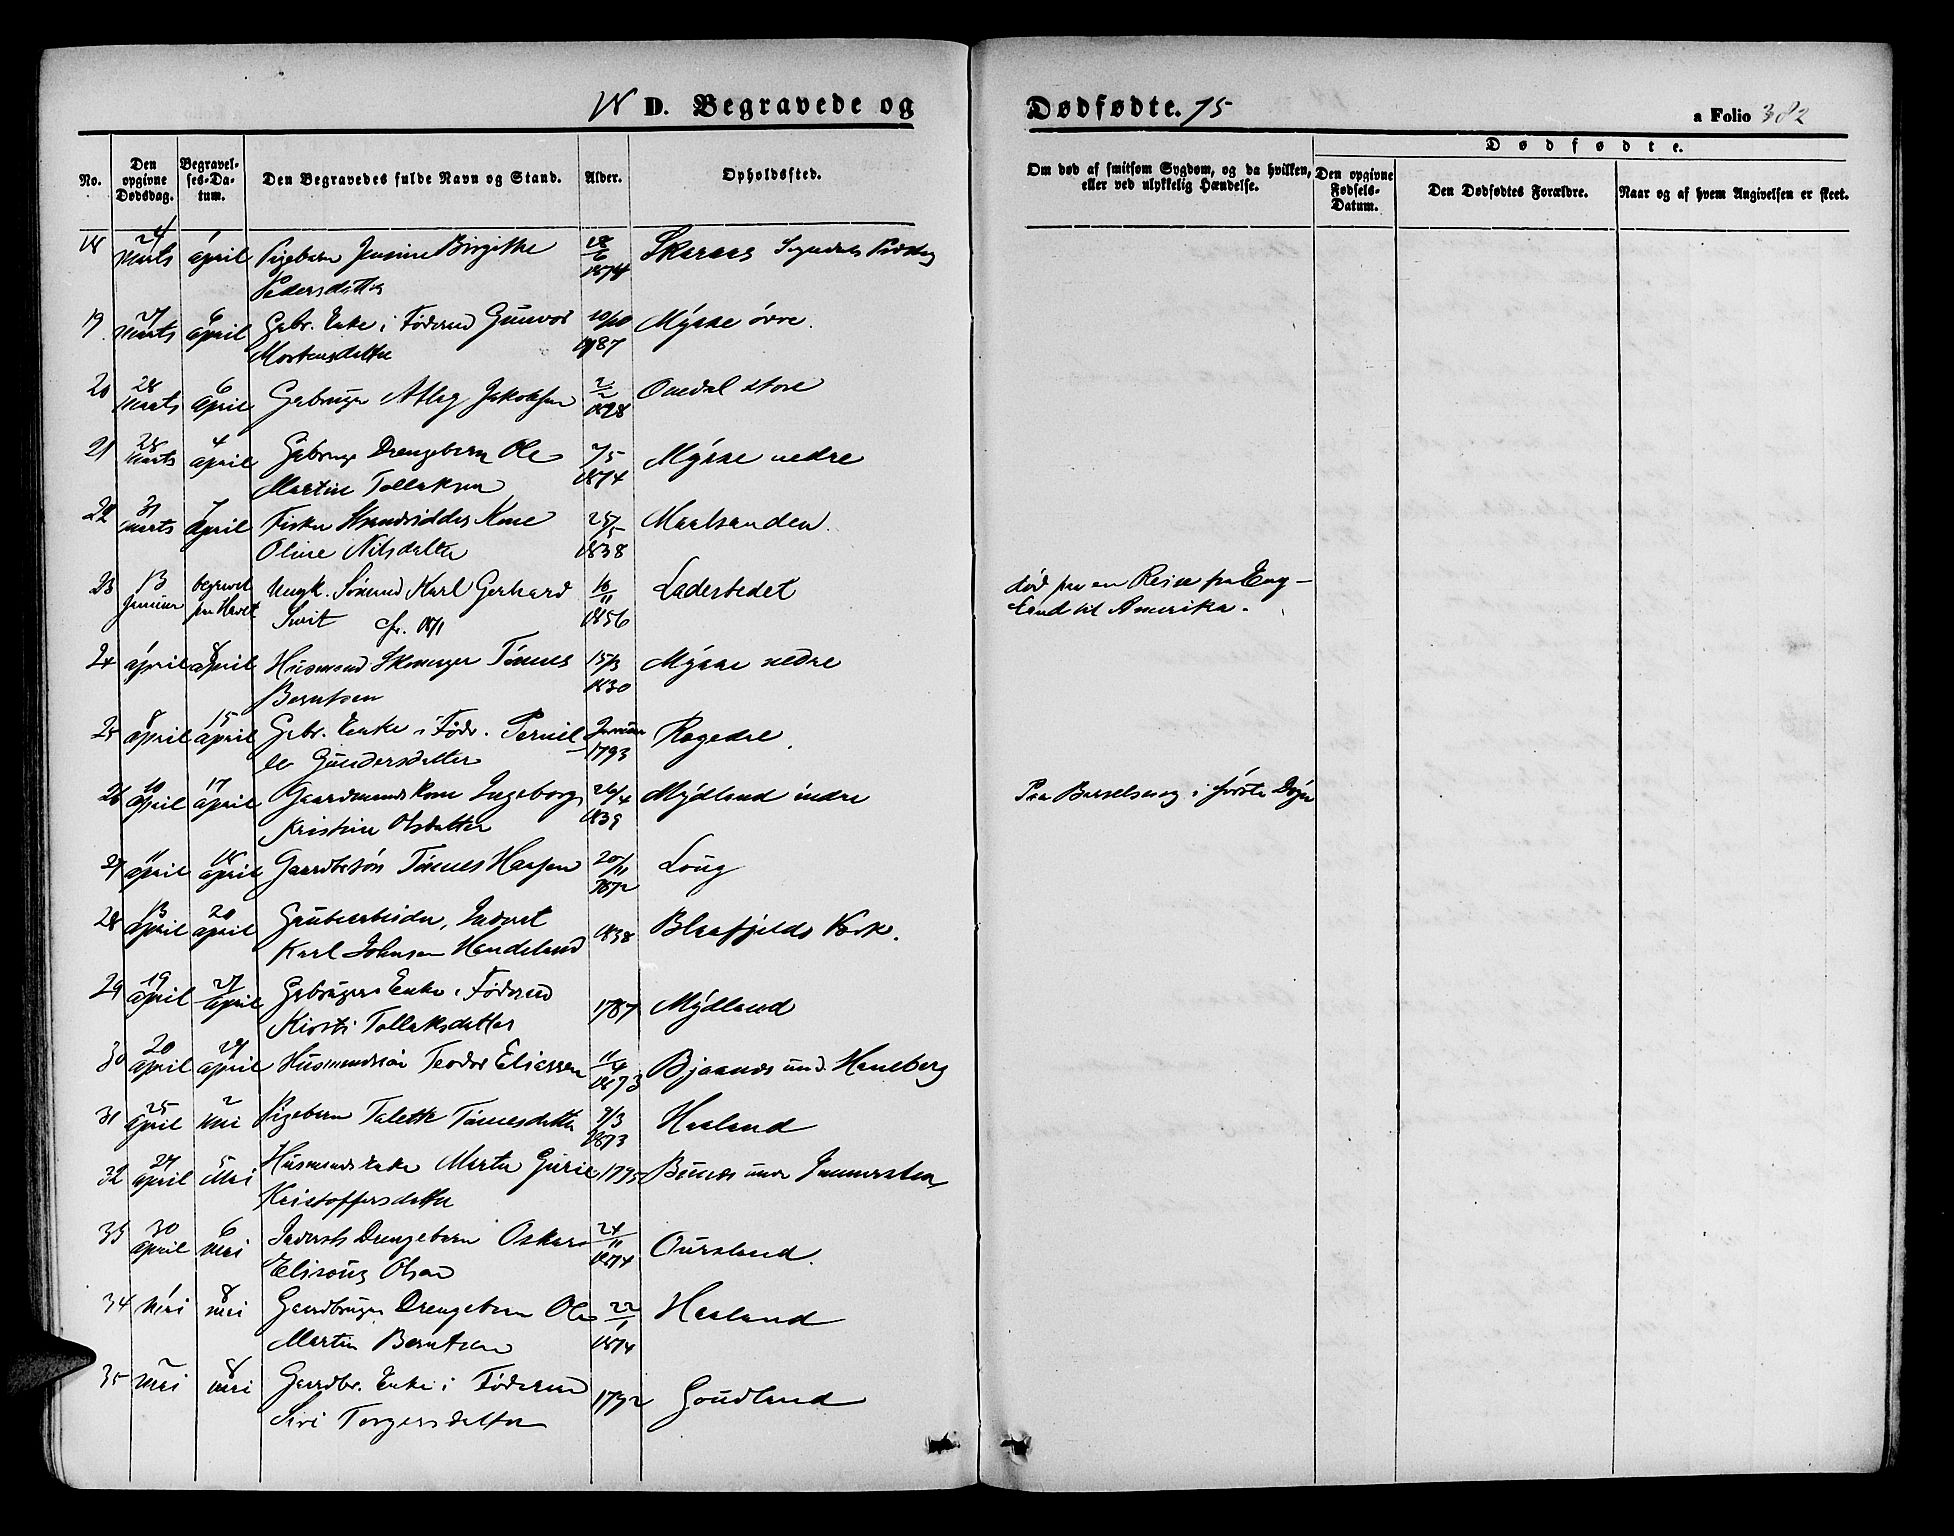 18 D. Begravede og
Dødfødte. 75
a Folio 382
No.
Den opgivne Dødsdag.
Begravelses-Datum.
Den Begravedes fulde Navn og Stand.
Alder.
Opholdssted.
Om død af smitsom Sygdom, og da hvilken, eller ved ulykkelig Hændelse.
Dødfødte.
Den opgivne Fødsels-Datum.
Den Dødfødtes Forældre.
Naar og af hvem Angivelsen er skeet.
18 24 Marts 1 April Pigebarn Jensine Birgitte 18/6 1874
Pedersdatter
19. 27 Marts 6 April Gbr. Enke i Føderaad Gunvor 20/10 1787 Mÿsse övre.
Mortensdatter
20 28 Marts 6 April Gbruger Atlag Jakobsen 2/2 1828 Ouedal store
21 28 Marts 4 April Gbrugr Drengebarn Ole 7/5 1874 Mÿsse nedre
Martin Tollaksen
22 31 Marts 7 April Fisker Strandsidders Kone 25/5 1838
Oline Nilsdatter
23 13 Januar begravet paa Havet Ungk. Sømand Karl Gerhard 16/11 1856 Ladestedet død paa en Reise fra Eng-
Sivit cfr. 1871 land til Amerika.
24 1 April 8 April Husmand Tönnes 15/3 1830 Mÿsse nedre
Berntsen
25 8 April 15 April Gbr. Enke i Fødr. Pernil- Januar 1793 Ragedal.
le Gundersdatter
26 10 April 17 April Gaardmands Kone Ingeborg 26/4 1839 Mÿdland indre Paa Barselseng i første Døgn
Kristine Olsdatter
27 11 April 18 April Gaardbrsön Tönnes Hansen 20/11 1872 Loug
28 13 April 20 April Grubearbeider, Inderst 1838 Blaafjelds Værk.
Karl Johnsen Handeland
29 19 April 27 April Gbrugers Enke i Föderaad 1787 Mÿdland
Kirsti Tollaksdatter
30 20 April 27 April Husmandssön Teodor Eliassen 11/4 1873 Bjaanes und. Haneberg
31 25 April 2 Mai Pigebarn Talette Tönnesdatter 9/3 1873 Haaland
32 27 April 5 Mai Husmands Enke Marta Gurie 1795
Kristoffersdatter
33 30 April 6 Mai Indersts Drengebarn Oskar 24/11 1874 Oursland.
Elisæus Olsen
34 1 Mai 8 Mai Gaardbruger Drengebarn Ole 22/1 1874 Haaland
Martin Berntsen
35 2 Mai 8 Mai Gaardbr. Enke i Föderaad 1792 Goudland
Siri Torgersdatter